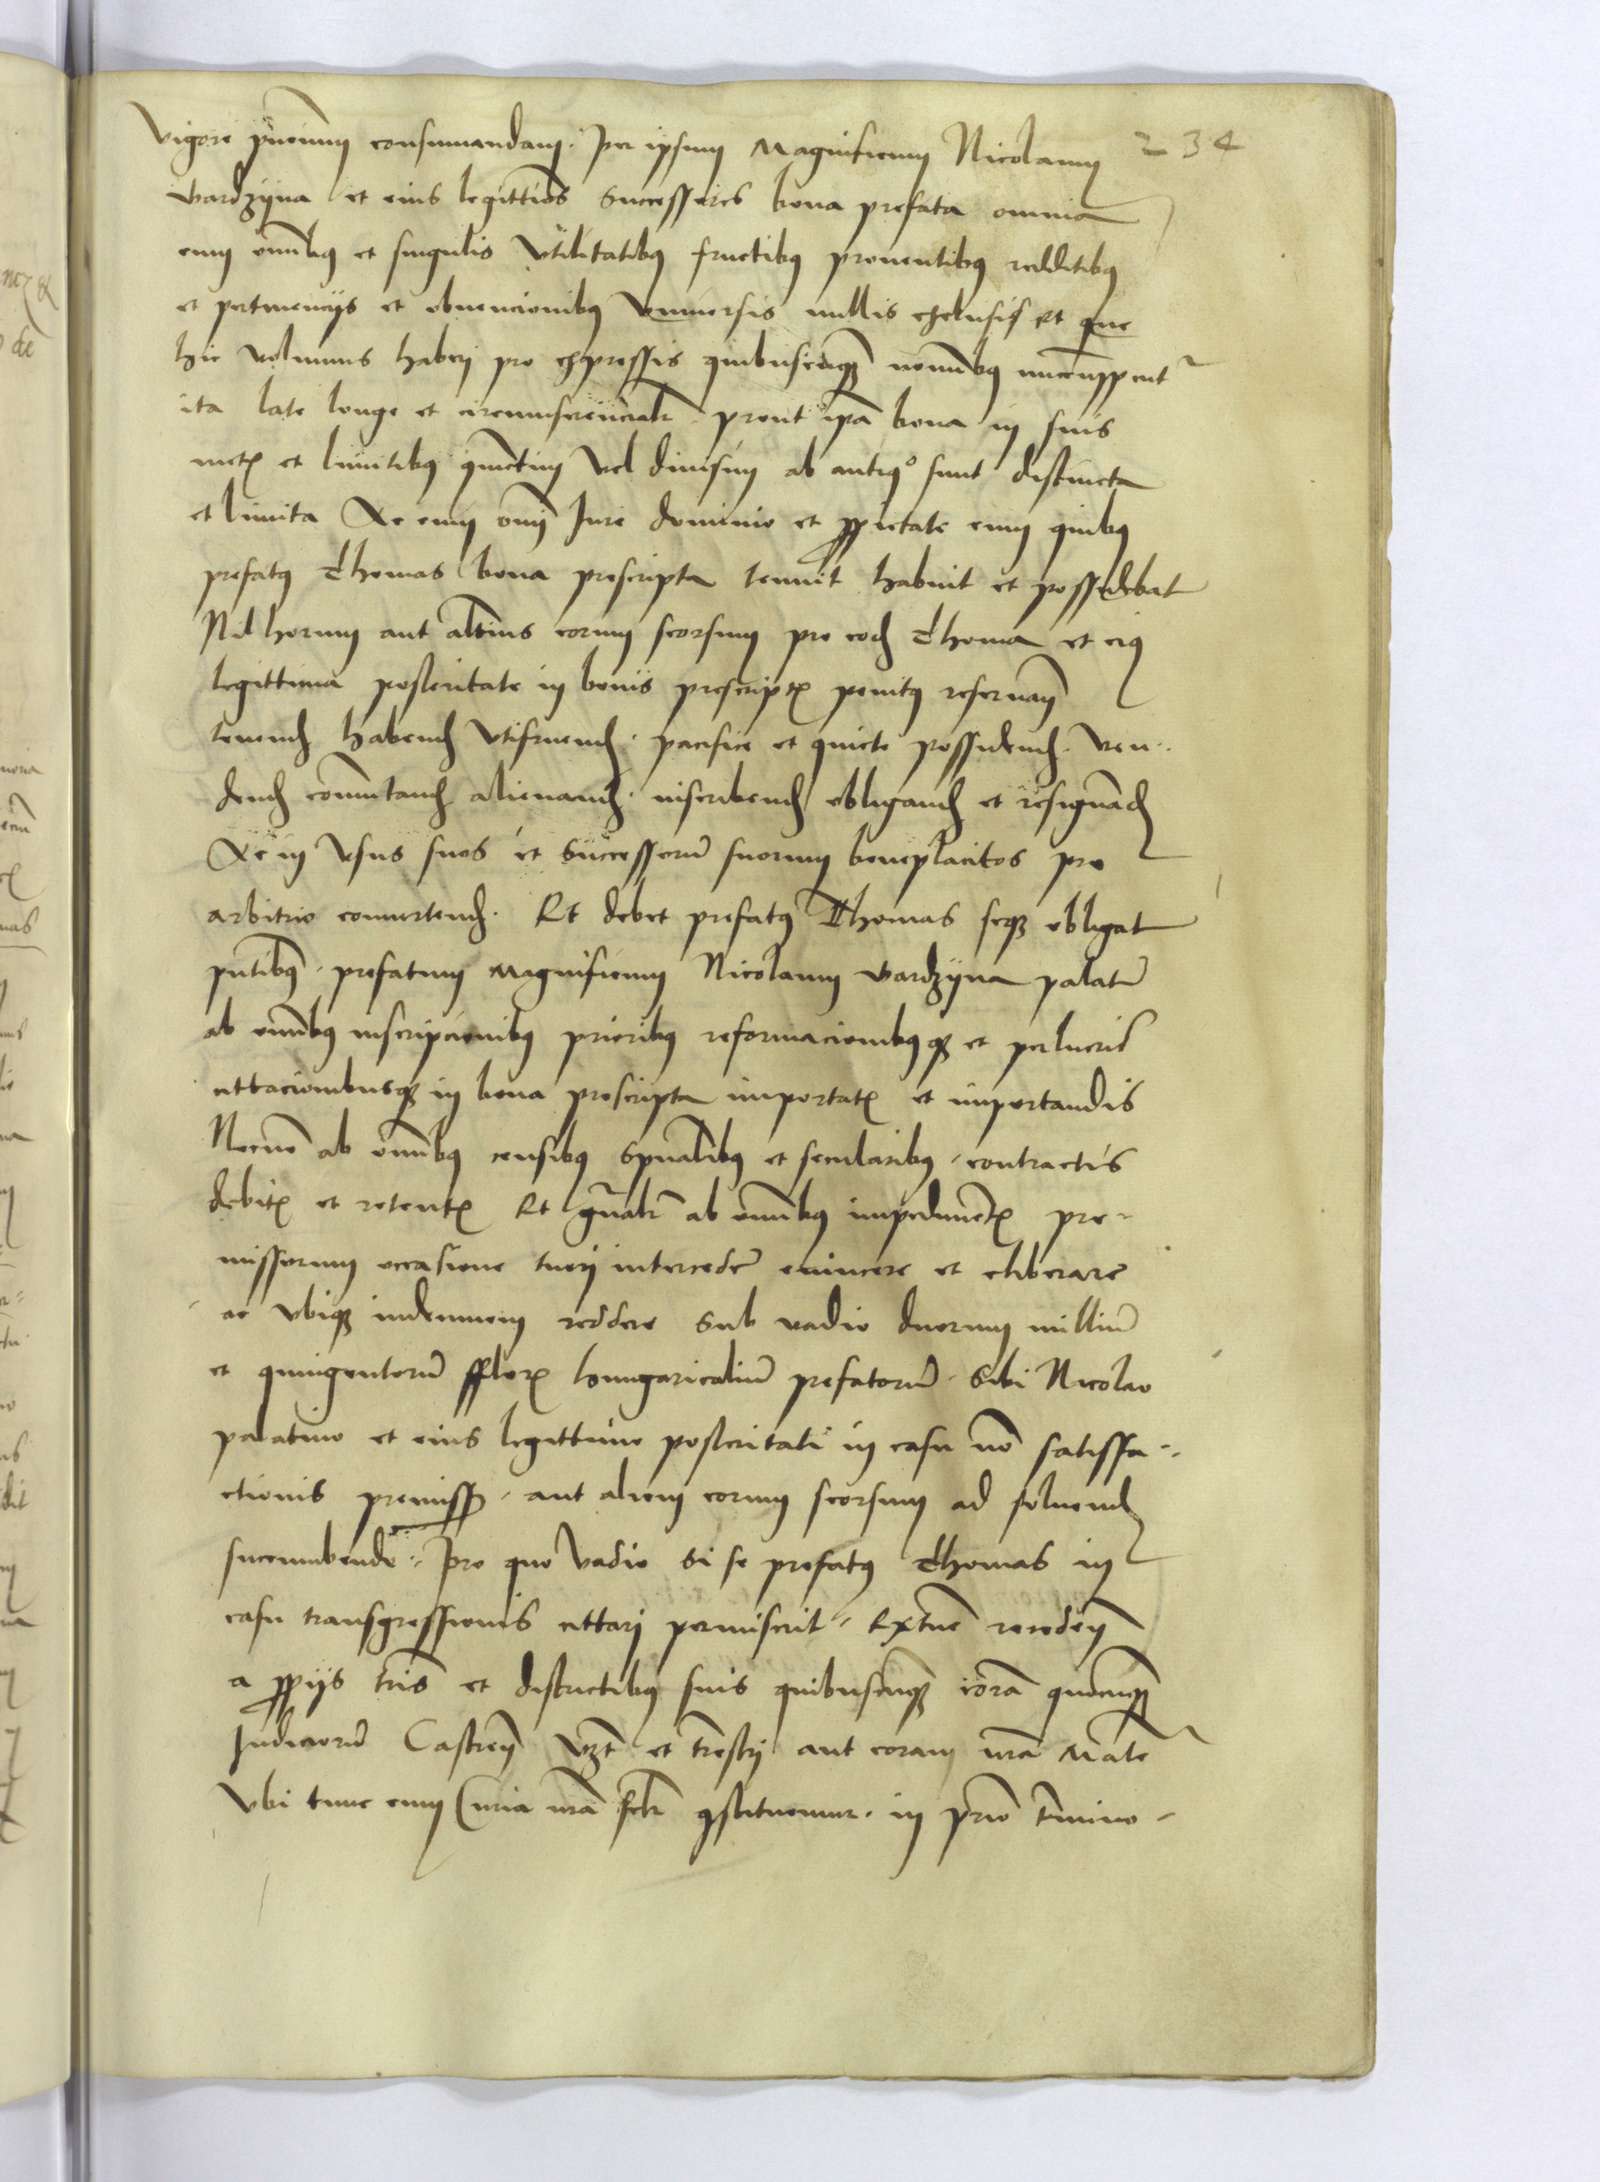 234
vigore pñcium consumandam. Per ipsum Magnificum Nicolaum
vardzijna et eius legittiōs Successores bona prefata omnia
cum omĩbus et singulis Vtilitatibus fructibus prouentibus redditibus
et pertinencijs et obuencionibus vniuersis nullis exclusis Et que
hic volumus haberi pro expressis quibuscũque nomĩbus nuncupent
ita late longe et circumferẽcialr̃ prout ip̃a bona in suis
metis et limitibus iũctim vel diuisim ab antiquo sunt distincta
et limita Ac cum om̃i Iure dominio et proprietate cum quibus
prefatus Thomas bona prescripta tenuit habuit et possidebat
Nil horum aut alt̃ius eorum seorsum pro eod Thoma et eius
legittima posteritate in bonis prescriptis penitus reseruañ
tenend habend vtifruend. pacifice et quiete possidend. ven-
dend com̃utand alienand. inscribend obligand et resignãd
Ac in vsus suos et Successorũ suorum beneplacitos pro
arbitrio conuertend. Et debet prefatus Thomas seque obligat
pñtibus. prefatum Magnificum Nicolaum vardzijna palatĩ
ab omĩbus inscripcionibus prioribus reformacionibusque et perlucris
cittacionibusque in bona prescripta importatis et importandis
Necnõ ab omĩbus censibus Sp̃ualibus et secularibus. contractis
debitis et retentis Et gñalr̃ ab omĩbus impedimẽtis pre-
missorum occasione tueri interceder̃ euincere et eliberare
ac vbique indemnem reddere Sub vadio duorum milliũ
et quingentorũ fflor. hungaricaliũ prefatorũ. Sibi Nicolao
palatino et eius legittime posteritati in casu nõ satisfa-
ctionis premiss. aut alicui eorum seorsum ad soluend
succumbendẽ. Pro quo vadio Si se prefatus Thomas in
casu transgressionis cittari permiserit. Extũc recedeñ
a proprijs t̃ris et districtibus suis quibuscũque corã quocunque
Iudiciorũ Castreñ vzt et t̃restri aut coram nr̃a Mate
vbi tunc cum Curia nr̃a felr̃ constituemur. in prĩo t̃mino-